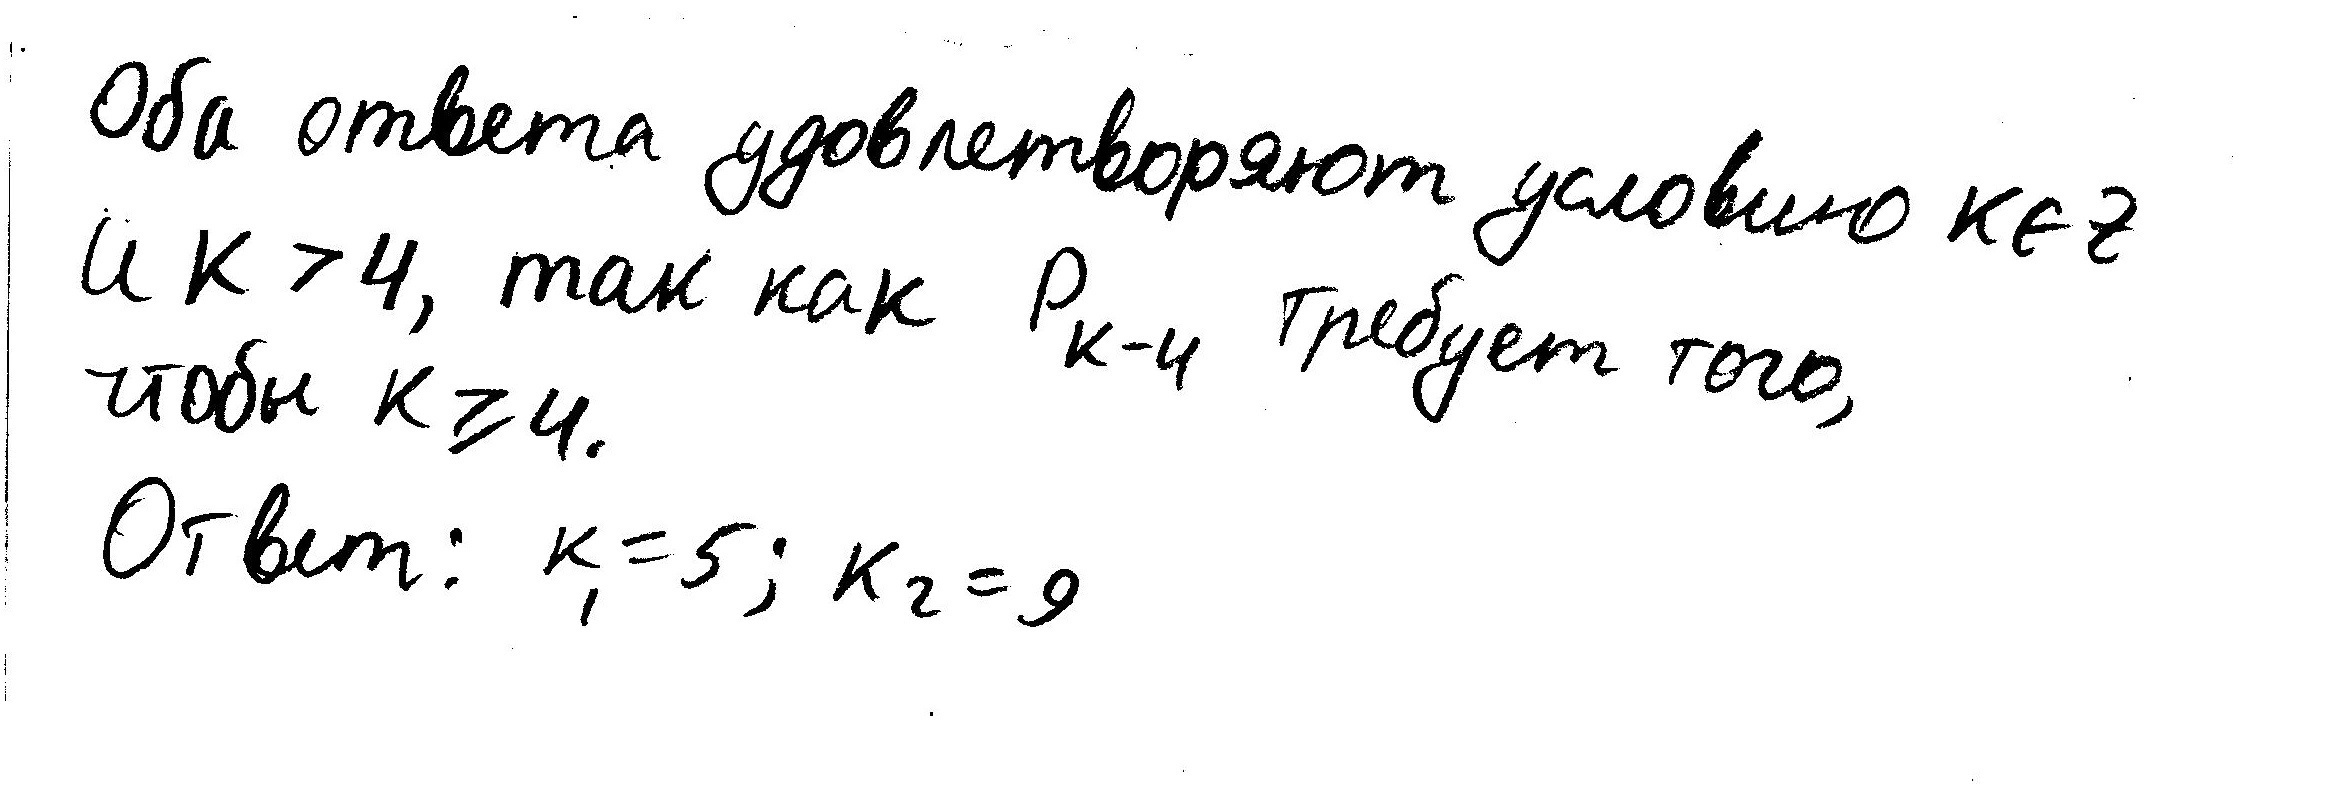 Оба ответа удовлетворяют условию k∈Z
и k > 4, так как P_{k-4} требует того,
чтобы k ≥ 4.
Ответ: k₁ = 5; k₂ = 9